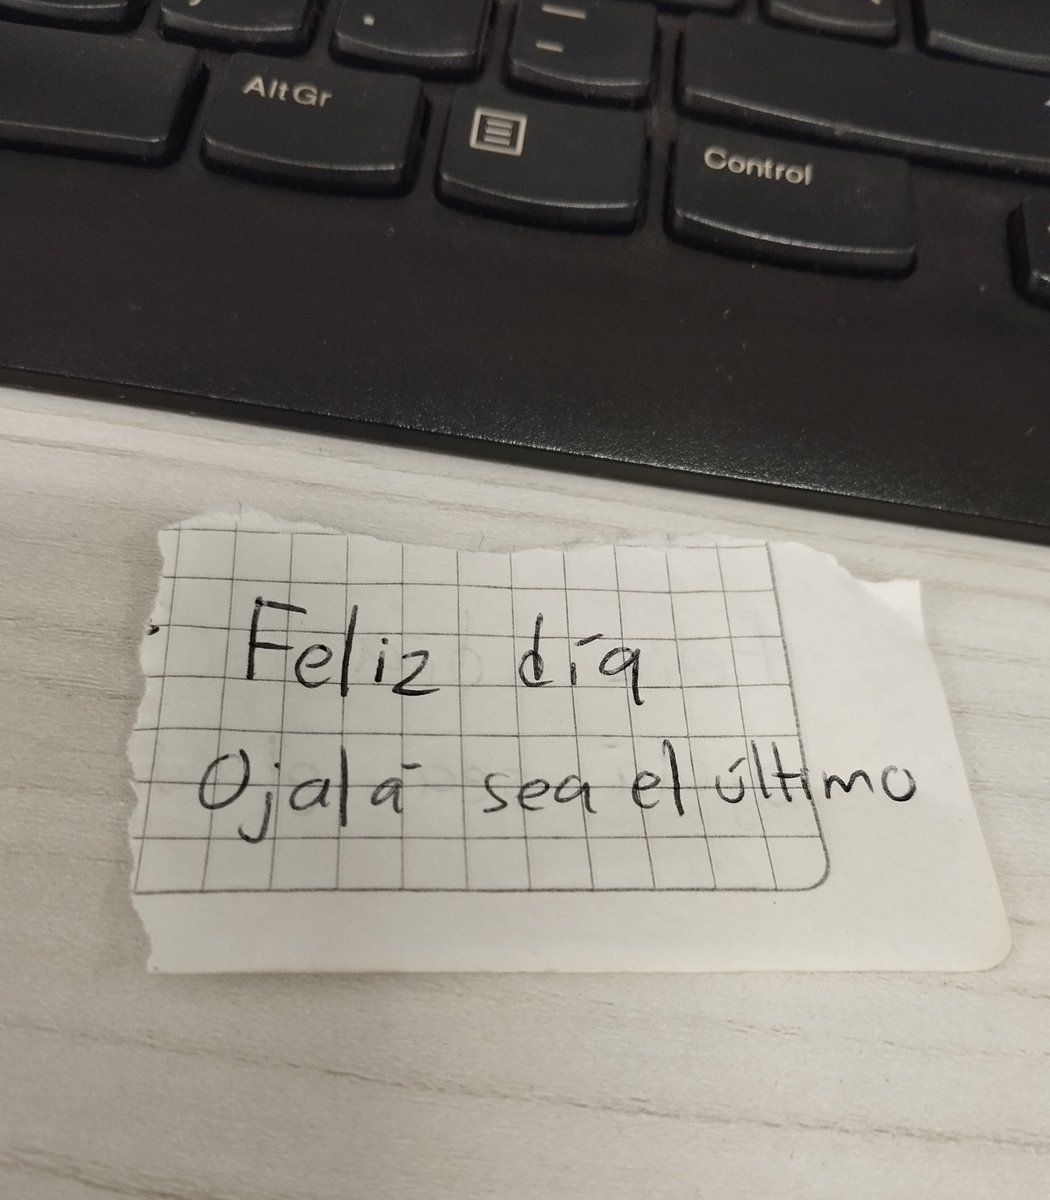 AltGr
Control
Feliz día
Ojalá sea el último